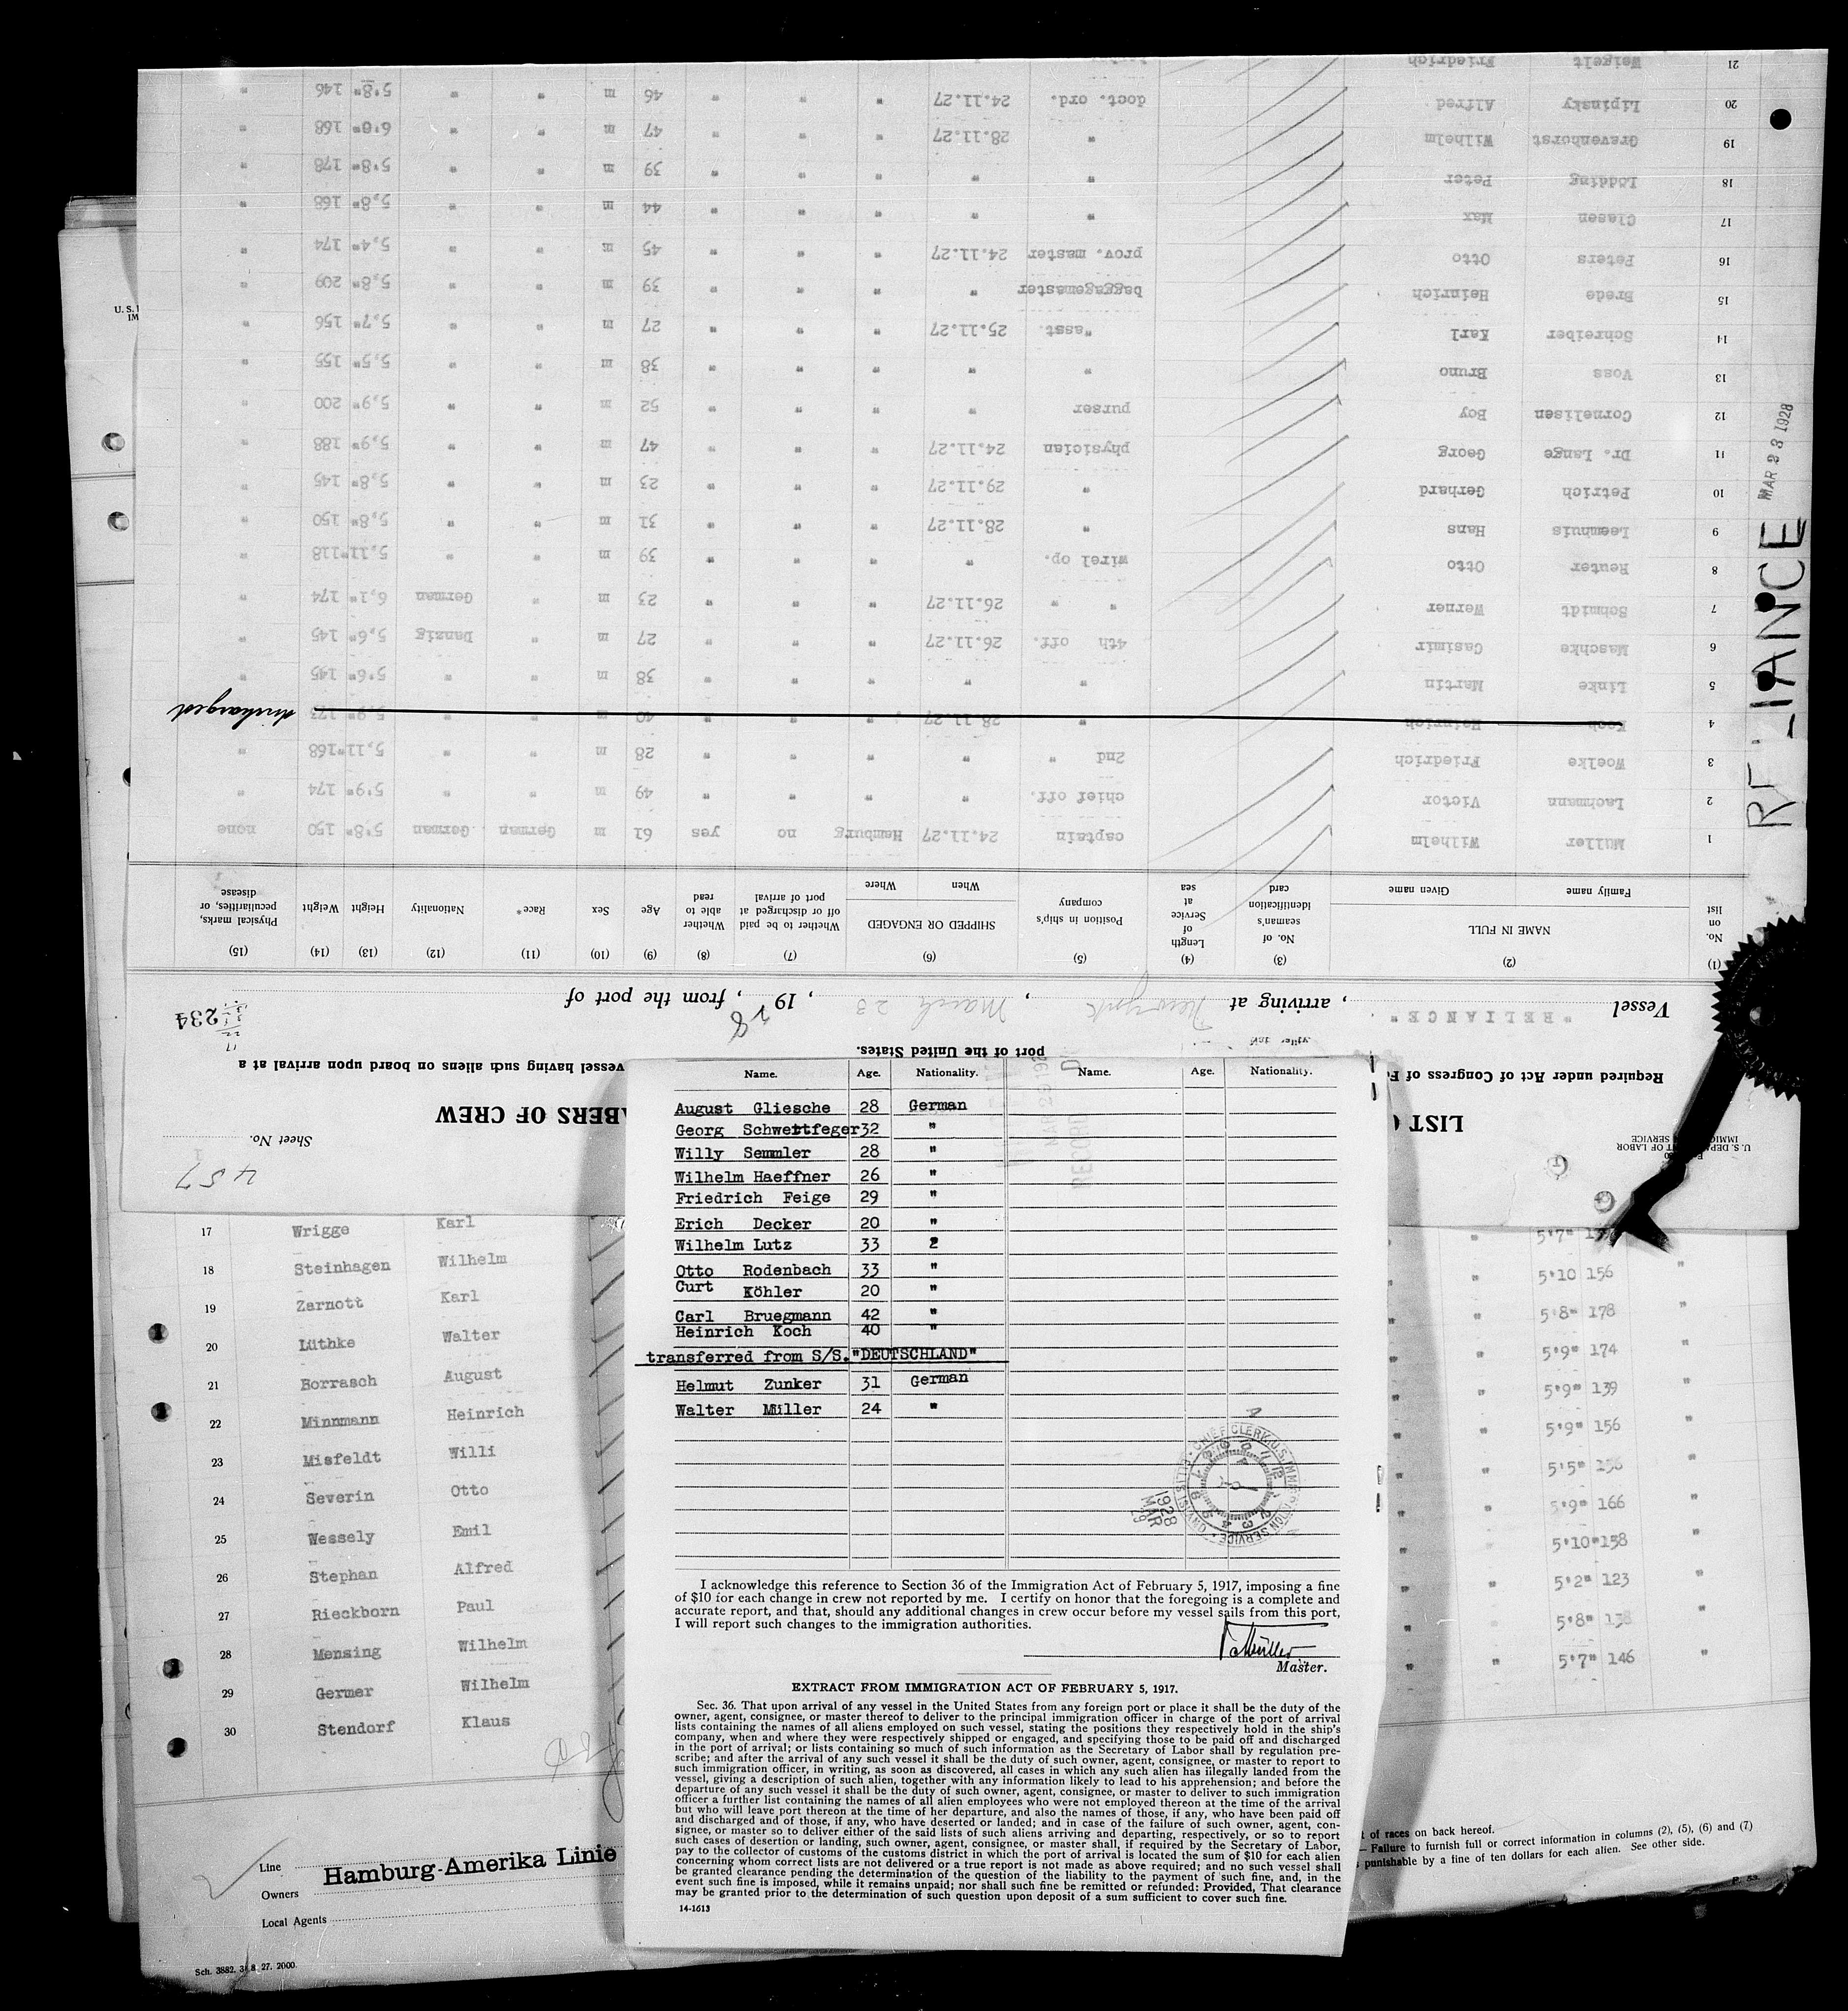 U. S. DEPARTMENT OF LABOR
IMMIGRATION SERVICE
Sheet No.
457
LIST
BERS OF CREW
Required under Act of Congress of
vessel having such aliens on board upon arrival at a
port of the United States.
234
Vessel "RELIANCE", arriving at New York, March 23, 1928, from the port of
(1) (2) (3) (4) (5) (6) (7) (8) (9) (10) (11) (12) (13) (14) (15)
No. on list NAME IN FULL Family name Given name No. of seaman's identification card Length of Service at sea Position in ship's company SHIPPED OR ENGAGED When Where Whether to be paid off or discharged at port of arrival Whether able to read Age Sex Race* Nationality Height Weight Physical marks, peculiarities, or disease
1 Müller Wilhelm captain 24.11.27 Hamburg no yes 61 m German German 5'8" 150 none
2 Lachmann Victor chief off. " " " " 49 m " " 5'9" 174 "
3 Woelke Friedrich 2nd " " " " " 28 m " " 5,11" 168 "
4 Koch Heinrich " 28.11.27 " " " 40 m " " 5,9" 173 discharged
5 Linke Martin " " " " " 38 m " " 5'6" 145 "
6 Maschke Casimir 4th off. 26.11.27 " " " 27 m " Danzig 5,6" 145 "
7 Schmidt Werner " " 26.11.27 " " " 23 m " German 6,1" 174 "
8 Reuter Otto wirel op. " " " " 39 m " " 5,11" 118 "
9 Leemhuis Hans " 28.11.27 " " " 31 m " " 5,8" 150 "
10 Petrich Gerhard " 29.11.27 " " " 23 m " " 5,8" 145 "
11 Dr. Lange Georg physician 24.11.27 " " " 47 m " " 5,9" 188 "
12 Cornelisen Boy purser " " " " 52 m " " 5,9" 200 "
13 Voss Bruno " " " " " 38 m " " 5,5" 155 "
14 Schreiber Karl "asst. 25.11.27 " " " 27 m " " 5,7" 156 "
15 Brede Heinrich baggagemaster " " " " 39 m " " 5,8" 209 "
16 Peters Otto prov. master 24.11.27 " " " 45 m " " 5,4" 174 "
17 Clasen Max " " " " " 44 m " " 5,8" 168 "
18 Lödding Peter " " " " " 39 m " " 5'8" 178 "
19 Gravenhorst Wilhelm " 28.11.27 " " " 47 m " " 6'0" 168 "
20 Lipinsky Alfred doct. ord. 24.11.27 " " " 46 m " " 5'8" 146 "
21 Weigelt Friedrich
RELIANCE MAR 23 1928
U. S.
IM
17 Wrigge Karl " 5'7"
18 Steinhagen Wilhelm " 5'10 156 "
19 Zarnott Karl " 5'8" 178 "
20 Lüthke Walter " 5'9" 174 "
21 Borrasch August " 5'9" 139 "
22 Minnmann Heinrich " 5'9" 156 "
23 Misfeldt Willi " 5'5" 156 "
24 Severin Otto " 5'9" 166 "
25 Wessely Emil " 5'10" 158 "
26 Stephan Alfred " 5'2" 123 "
27 Rieckborn Paul " 5'8" 138 "
28 Mensing Wilhelm " 5'7" 146 "
29 Germer Wilhelm
30 Stendorf Klaus
Line Hamburg-Amerika Linie
Owners
Local Agents
Sch. 3882. 3. 8. 27. 2000.
of races on back hereof.
Failure to furnish full or correct information in columns (2), (5), (6) and (7)
punishable by a fine of ten dollars for each alien. See other side.
Name. Age. Nationality. Name. Age. Nationality.
August Gliesche 28 German
Georg Schwertfeger 32 "
Willy Semmler 28 "
Wilhelm Haeffner 26 "
Friedrich Feige 29 "
Erich Decker 20 "
Wilhelm Lutz 33 2
Otto Rodenbach 33 "
Curt Köhler 20 "
Carl Bruegmann 42 "
Heinrich Koch 40 "
transferred from S/S."DEUTSCHLAND"
Helmut Zunker 31 German
Walter Müller 24 "
CHIEF CLERK U.S. IMMIGRATION SERVICE · ELLIS ISLAND
1928 MAR 29
I acknowledge this reference to Section 36 of the Immigration Act of February 5, 1917, imposing a fine
of $10 for each change in crew not reported by me. I certify on honor that the foregoing is a complete and
accurate report, and that, should any additional changes in crew occur before my vessel sails from this port,
I will report such changes to the immigration authorities.
Müller
Master.
EXTRACT FROM IMMIGRATION ACT OF FEBRUARY 5, 1917.
Sec. 36. That upon arrival of any vessel in the United States from any foreign port or place it shall be the duty of the
owner, agent, consignee, or master thereof to deliver to the principal immigration officer in charge of the port of arrival
lists containing the names of all aliens employed on such vessel, stating the positions they respectively hold in the ship's
company, when and where they were respectively shipped or engaged, and specifying those to be paid off and discharged
in the port of arrival; or lists containing so much of such information as the Secretary of Labor shall by regulation pre-
scribe; and after the arrival of any such vessel it shall be the duty of such owner, agent, consignee, or master to report to
such immigration officer, in writing, as soon as discovered, all cases in which any such alien has illegally landed from the
vessel, giving a description of such alien, together with any information likely to lead to his apprehension; and before the
departure of any such vessel it shall be the duty of such owner, agent, consignee, or master to deliver to such immigration
officer a further list containing the names of all alien employees who were not employed thereon at the time of the arrival
but who will leave port thereon at the time of her departure, and also the names of those, if any, who have been paid off
and discharged and of those, if any, who have deserted or landed; and in case of the failure of such owner, agent, con-
signee, or master so to deliver either of the said lists of such aliens arriving and departing, respectively, or so to report
such cases of desertion or landing, such owner, agent, consignee, or master shall, if required by the Secretary of Labor,
pay to the collector of customs of the customs district in which the port of arrival is located the sum of $10 for each alien
concerning whom correct lists are not delivered or a true report is not made as above required; and no such vessel shall
be granted clearance pending the determination of the question of the liability to the payment of such fine, and, in the
event such fine is imposed, while it remains unpaid; nor shall such fine be remitted or refunded: Provided, That clearance
may be granted prior to the determination of such question upon deposit of a sum sufficient to cover such fine.
14-1613